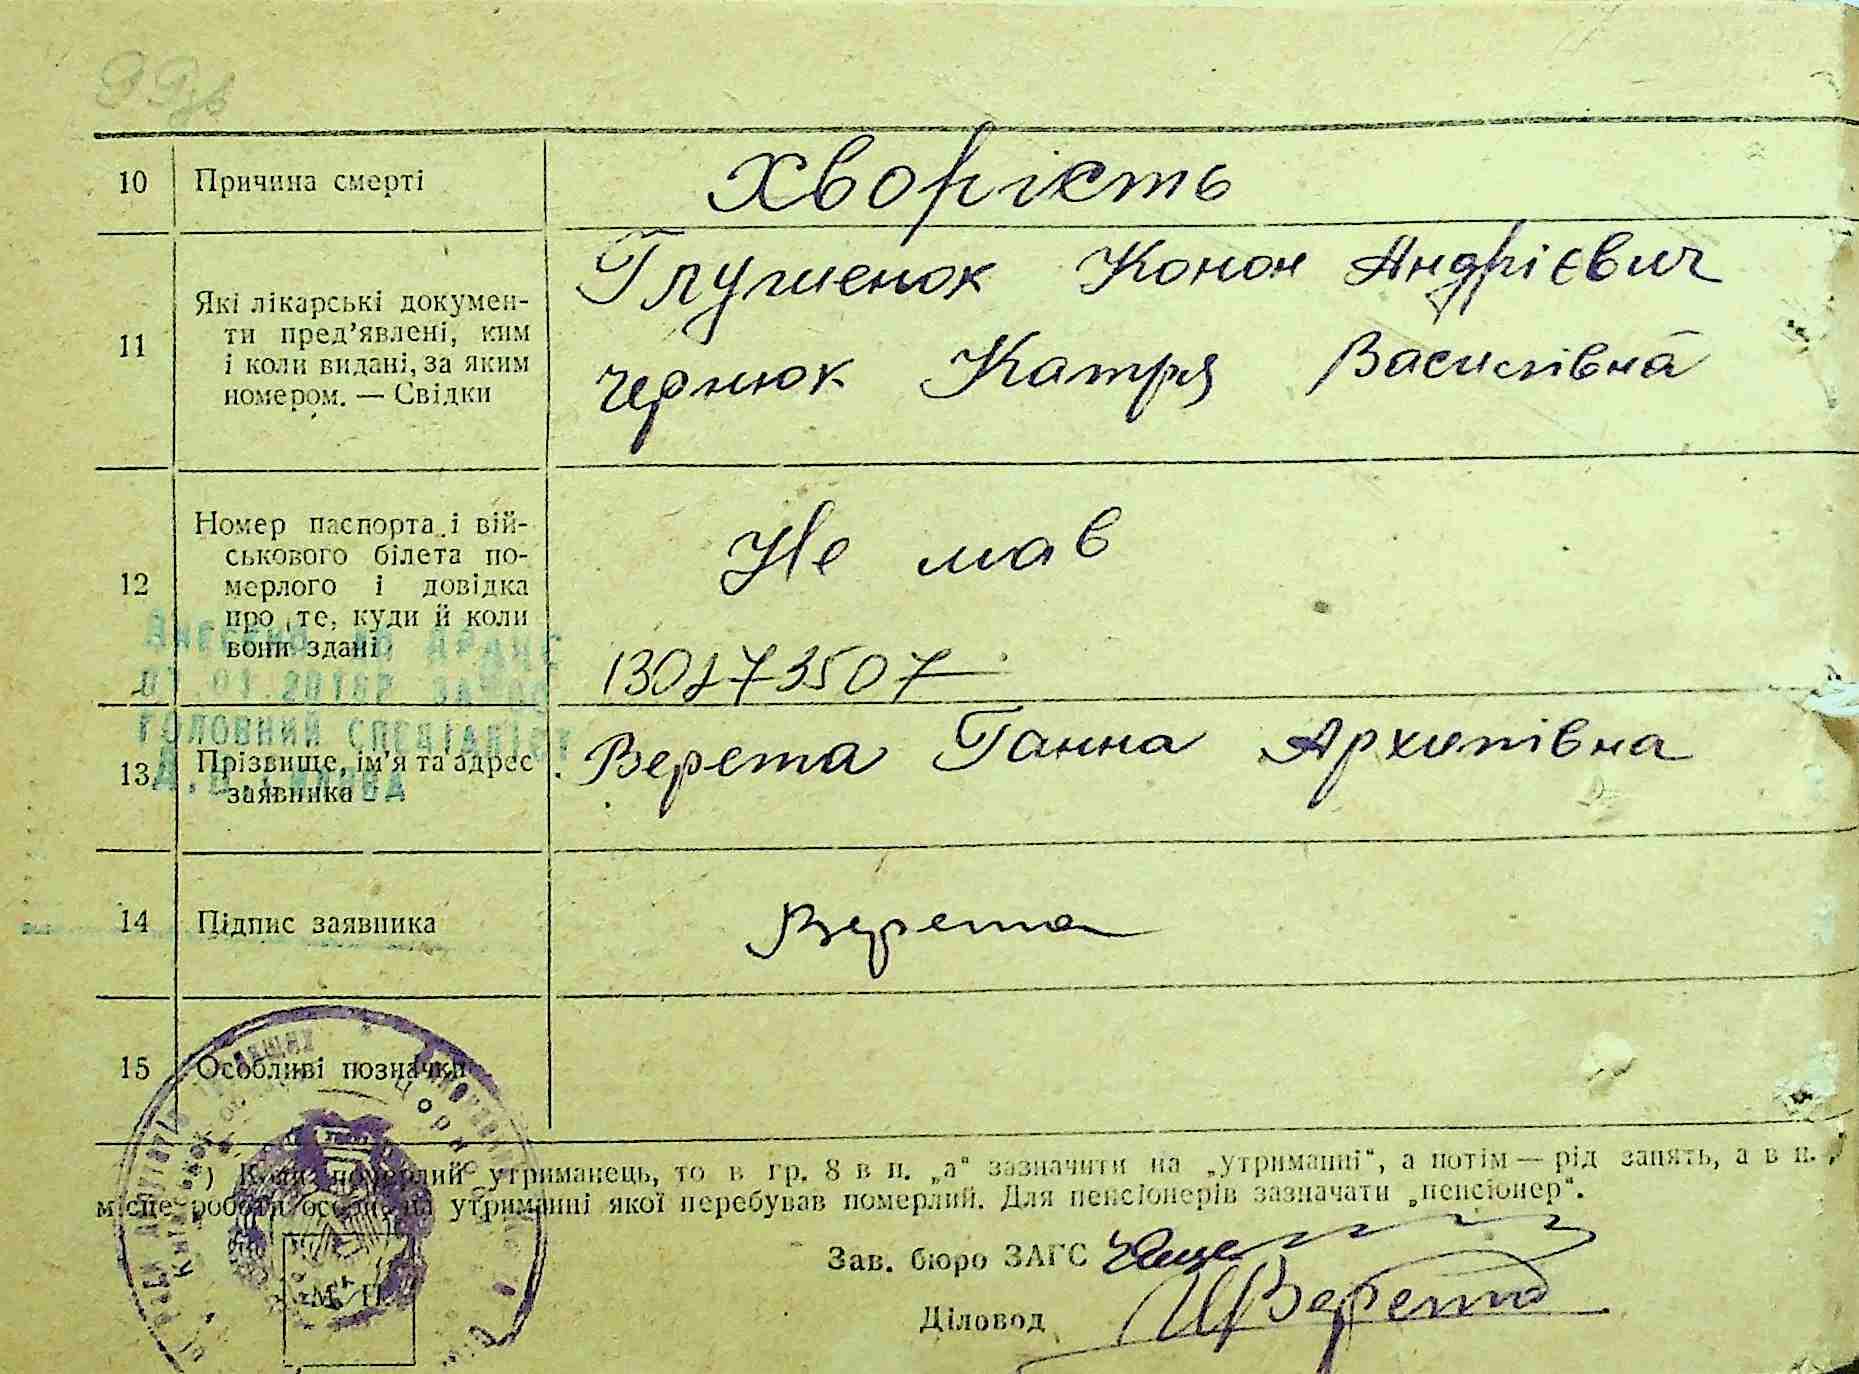 10 Причина смерті Хворість
11 Які лікарські документи пред'явлені, ким і коли видані, за яким номером. — Свідки
Глушенок Конон Андрієвич
Чернюк Катря Василівна
12 Номер паспорта і військового білета померлого і довідка про те, куди й коли вони здані
Не мав
130273507
ГОЛОВНИЙ СПЕЦІАЛІСТ
13 Прізвище, ім'я та адрес заявника
Верета Ганна Архипівна
14 Підпис заявника Верета
15 Особливі позначки
) Коли померлий утриманець, то в гр. 8 в п. „а" зазначити на „утриманні", а потім — рід занять, а в п.
місце роботи особи, на утриманні якої перебував померлий. Для пенсіонерів зазначати „пенсіонер".
Зав. бюро ЗАГС
Діловод Верета
М. П.